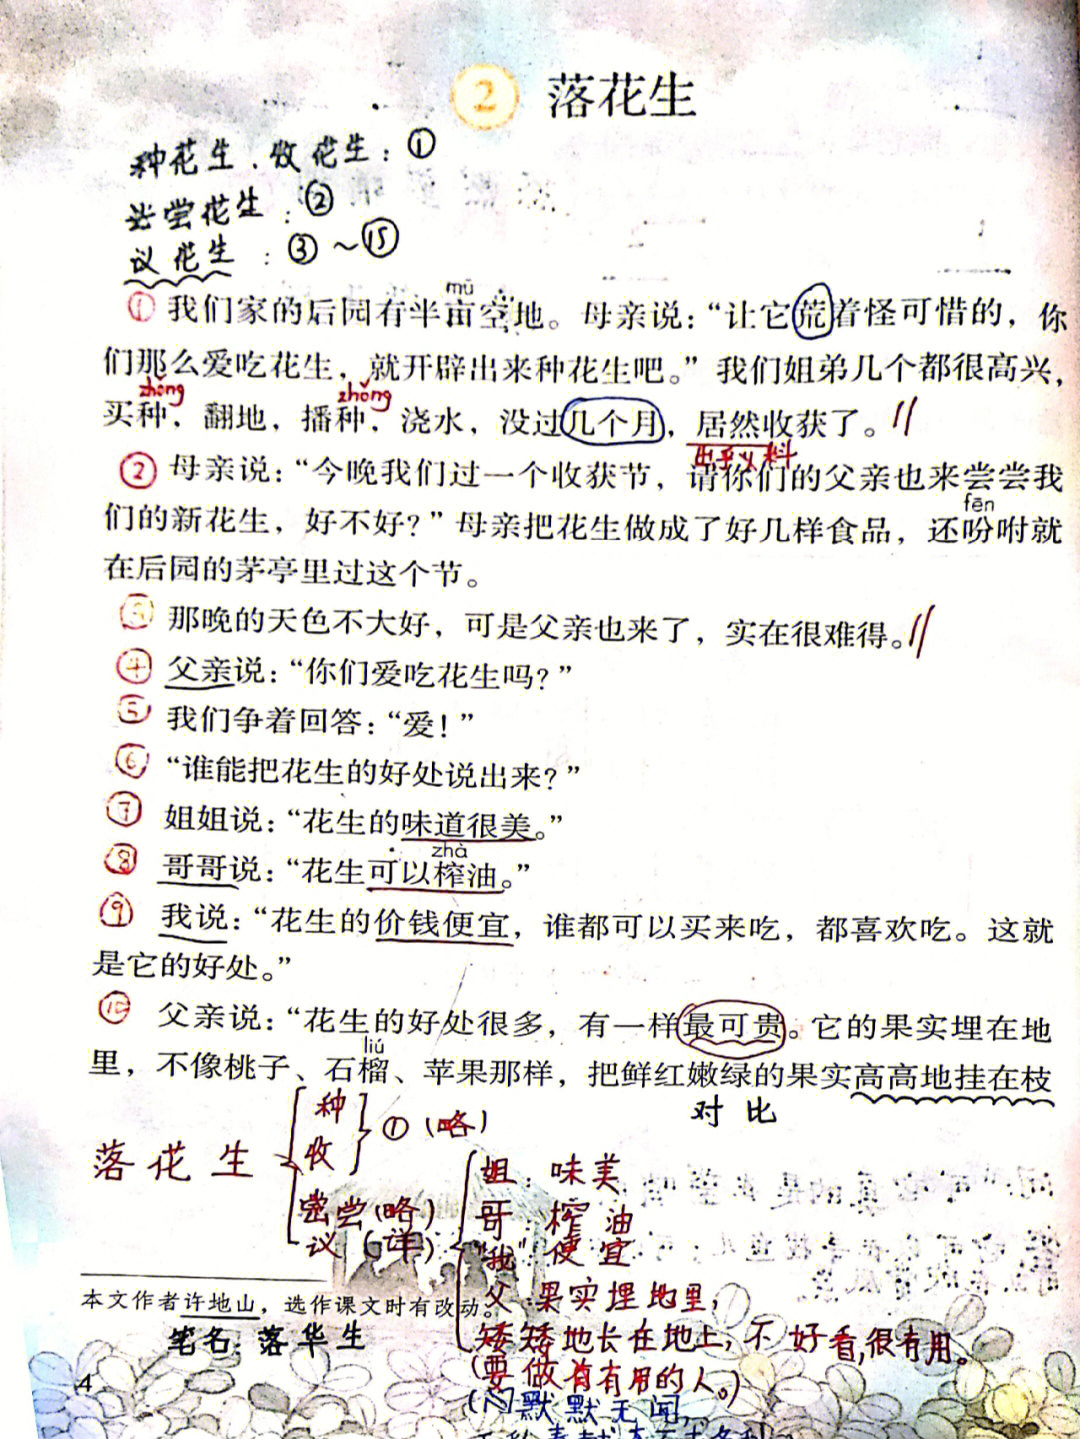 2 落花生
种花生、收花生：①
尝花生：②
议花生：③～⑮
mǔ
①我们家的后园有半亩空地。母亲说：“让它荒着怪可惜的，你
们那么爱吃花生，就开辟出来种花生吧。”我们姐弟几个都很高兴，
zhǒng zhǒng
买种，翻地，播种，浇水，没过几个月，居然收获了。
出乎意料
②母亲说：“今晚我们过一个收获节，请你们的父亲也来尝尝我
fēn
们的新花生，好不好？”母亲把花生做成了好几样食品，还吩咐就
在后园的茅亭里过这个节。
③那晚的天色不大好，可是父亲也来了，实在很难得。
④父亲说：“你们爱吃花生吗？”
⑤我们争着回答：“爱！”
⑥“谁能把花生的好处说出来？”
⑦姐姐说：“花生的味道很美。”
zhà
⑧哥哥说：“花生可以榨油。”
⑨我说：“花生的价钱便宜，谁都可以买来吃，都喜欢吃。这就
是它的好处。”
⑩父亲说：“花生的好处很多，有一样最可贵。它的果实埋在地
liú
里，不像桃子、石榴、苹果那样，把鲜红嫩绿的果实高高地挂在枝
对比
落花生
种
收
①（略）
尝（略）
议（详）
姐：味美
哥：榨油
“我”便宜
父：果实埋地里，
矮矮地长在地上，不好看，很有用。
（要做有用的人。）
默默无闻，
本文作者许地山，选作课文时有改动。
笔名：落华生
4